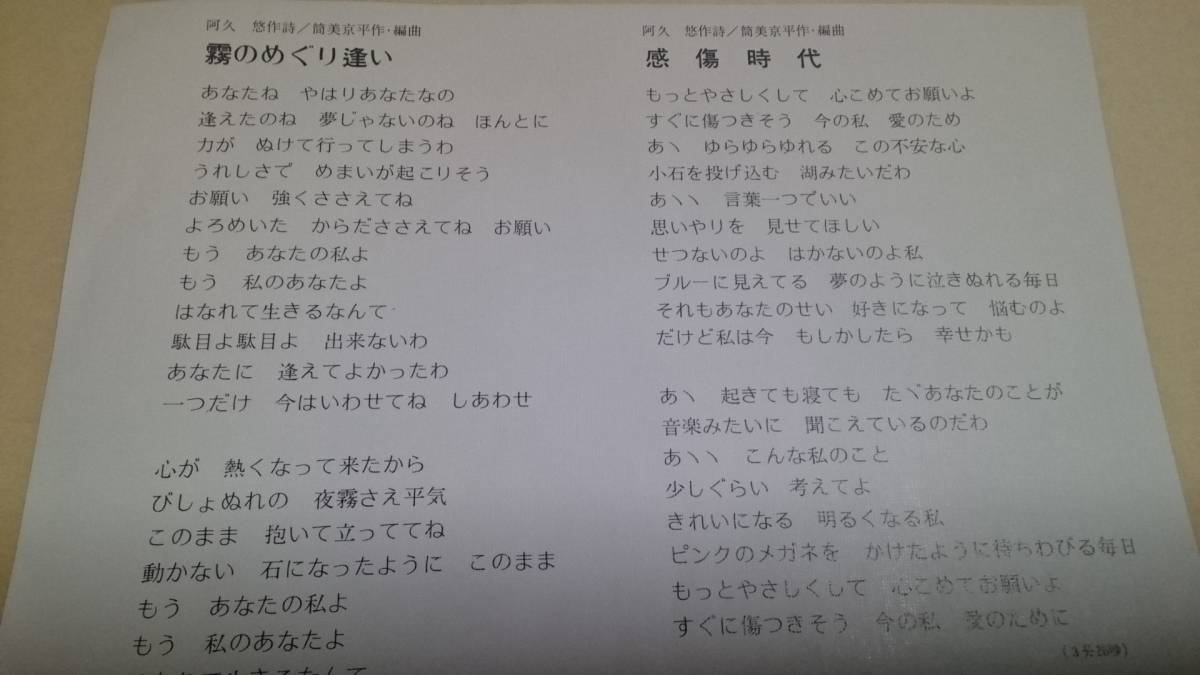 阿久　悠作詩／筒美京平作・編曲
霧のめぐり逢い
あなたね　やはりあなたなの
逢えたのね　夢じゃないのね　ほんとに
力が　ぬけて行ってしまうわ
うれしさで　めまいが起こりそう
お願い　強くささえてね
よろめいた　からだささえてね　お願い
もう　あなたの私よ
もう　私のあなたよ
はなれて生きるなんて
駄目よ駄目よ　出来ないわ
あなたに　逢えてよかったわ
一つだけ　今はいわせてね　しあわせ
心が　熱くなって来たから
びしょぬれの　夜霧さえ平気
このまま　抱いて立っててね
動かない　石になったように　このまま
もう　あなたの私よ
もう　私のあなたよ
阿久　悠作詩／筒美京平作・編曲
感傷時代
もっとやさしくして　心こめてお願いよ
すぐに傷つきそう　今の私　愛のため
あヽ　ゆらゆらゆれる　この不安な心
小石を投げ込む　湖みたいだわ
あヽヽ　言葉一つでいい
思いやりを　見せてほしい
せつないのよ　はかないのよ私
ブルーに見えてる　夢のように泣きぬれる毎日
それもあなたのせい　好きになって　悩むのよ
だけど私は今　もしかしたら　幸せかも
あヽ　起きても寝ても　たヾあなたのことが
音楽みたいに　聞こえているのだわ
あヽヽ　こんな私のこと
少しぐらい　考えてよ
きれいになる　明るくなる私
ピンクのメガネを　かけたように待ちわびる毎日
もっとやさしくして　心こめてお願いよ
すぐに傷つきそう　今の私　愛のために